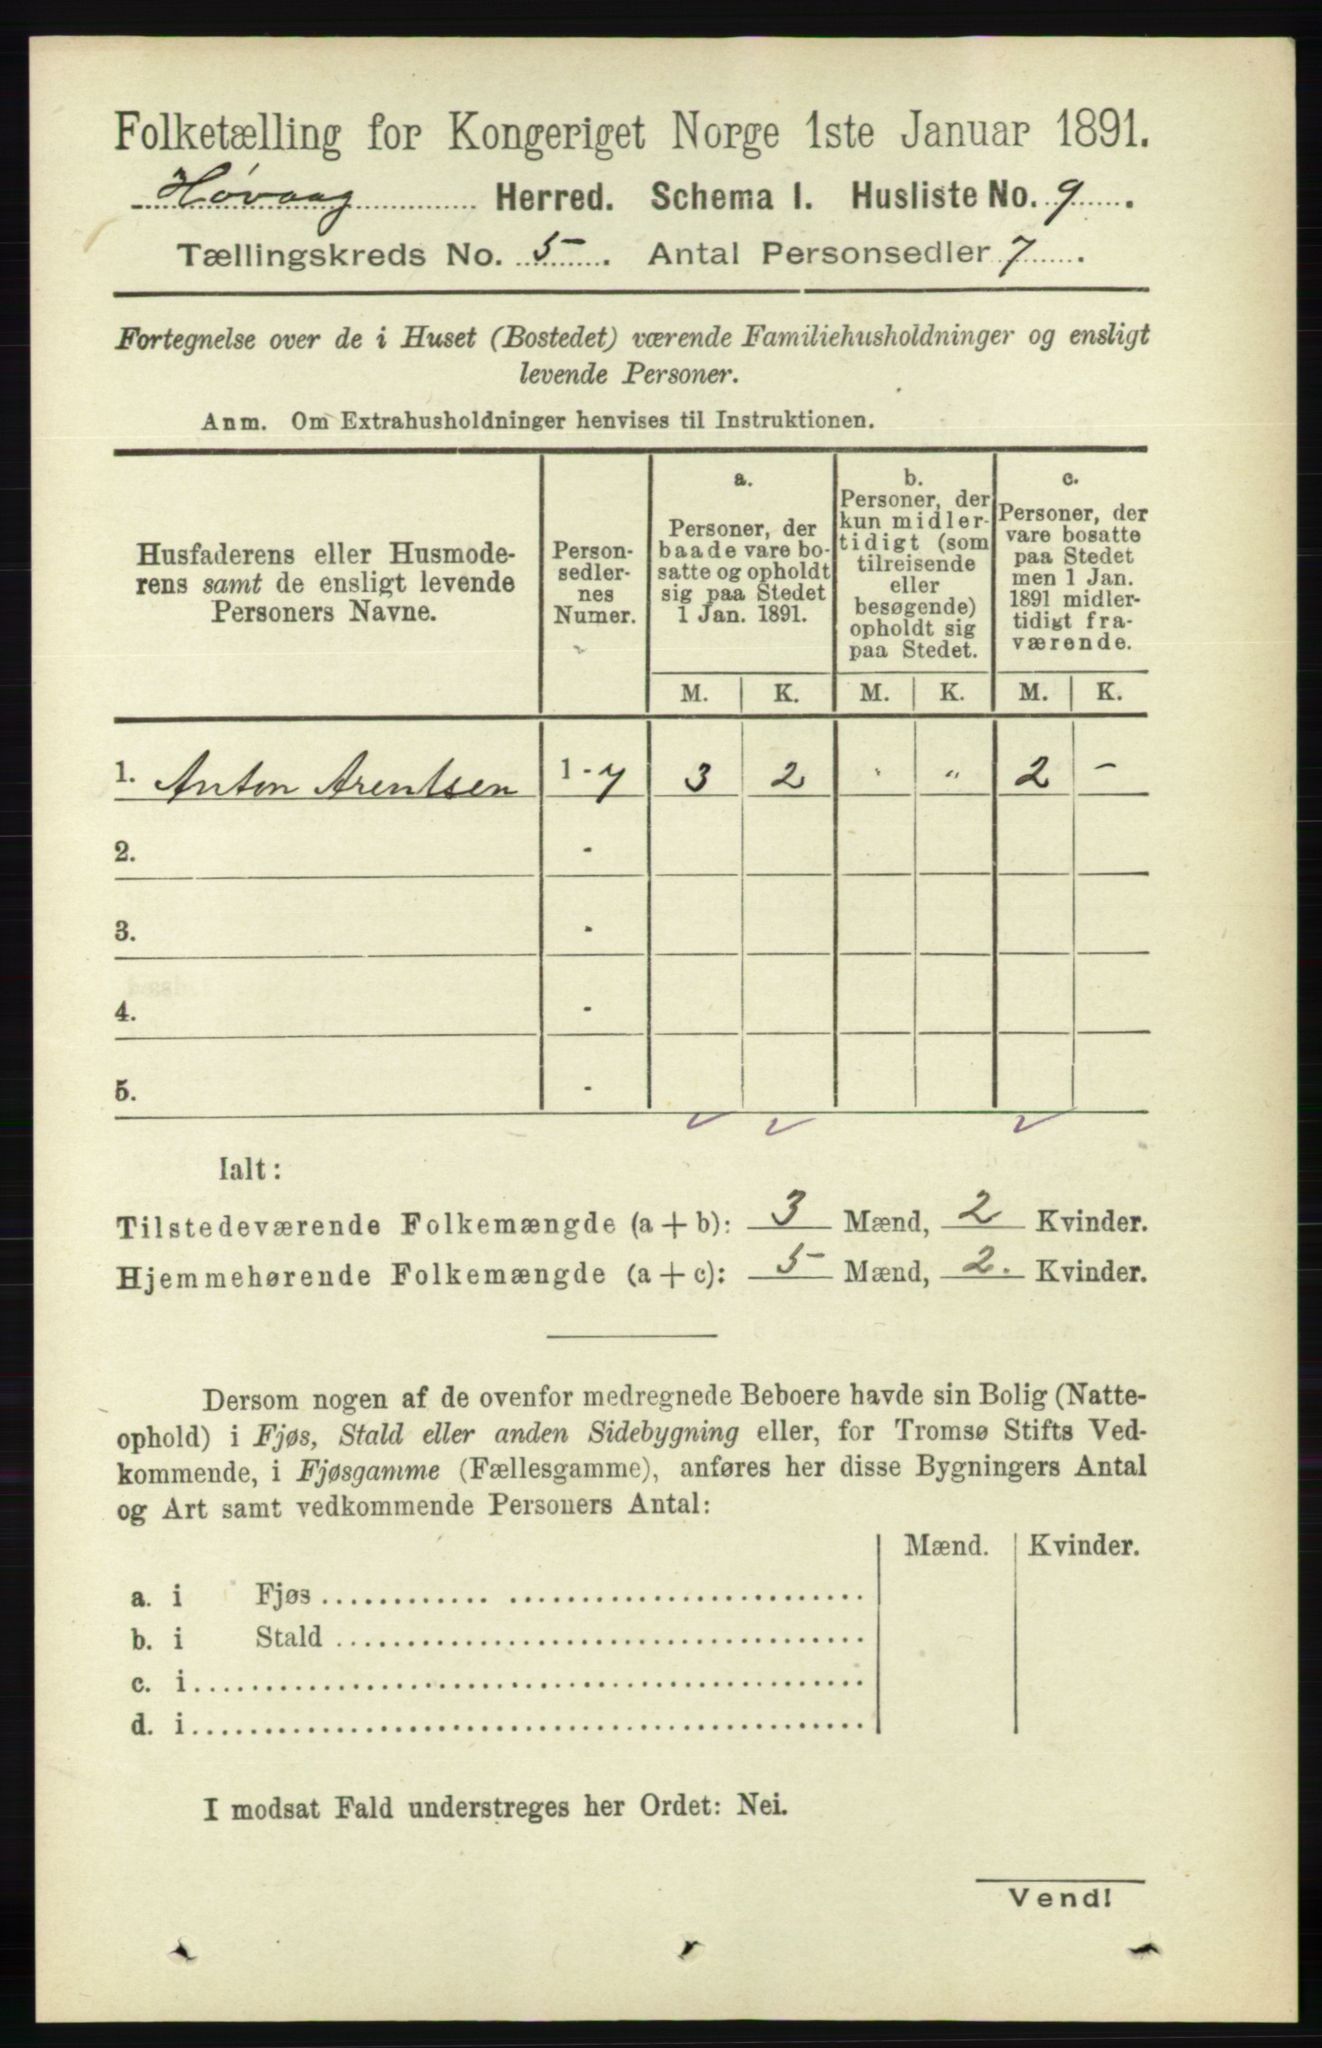 Folketælling for Kongeriget Norge 1ste Januar 1891.
Høvaag Herred. Schema I. Husliste No. 9.
Tællingskreds No. 5. Antal Personsedler 7.
Fortegnelse over de i Huset (Bostedet) værende Familiehusholdninger og ensligt
levende Personer.
Anm. Om Extrahusholdninger henvises til Instruktionen.
Husfaderens eller Husmode-
rens samt de ensligt levende
Personers Navne.
Person-
sedler-
nes
Numer.
a.
Personer, der
baade vare bo-
satte og opholdt
sig paa Stedet
1 Jan. 1891.
b.
Personer, der
kun midler-
tidigt (som
tilreisende
eller
besøgende)
opholdt sig
paa Stedet.
c.
Personer, der
vare bosatte
paa Stedet
men 1 Jan.
1891 midler-
tidigt fra-
værende.
M. K. M. K. M. K.
1. Anton Arentsen 1 - 7 3 2 " " 2 -
2. -
3. -
4. -
5. -
Ialt:
Tilstedeværende Folkemængde (a + b): 3 Mænd, 2 Kvinder.
Hjemmehørende Folkemængde (a + c): 5 Mænd, 2. Kvinder.
Dersom nogen af de ovenfor medregnede Beboere havde sin Bolig (Natte-
ophold) i Fjøs, Stald eller anden Sidebygning eller, for Tromsø Stifts Ved-
kommende, i Fjøsgamme (Fællesgamme), anføres her disse Bygningers Antal
og Art samt vedkommende Personers Antal:
Mænd. Kvinder.
a. i Fjøs
b. i Stald
c. i
d. i
I modsat Fald understreges her Ordet: Nei.
Vend!